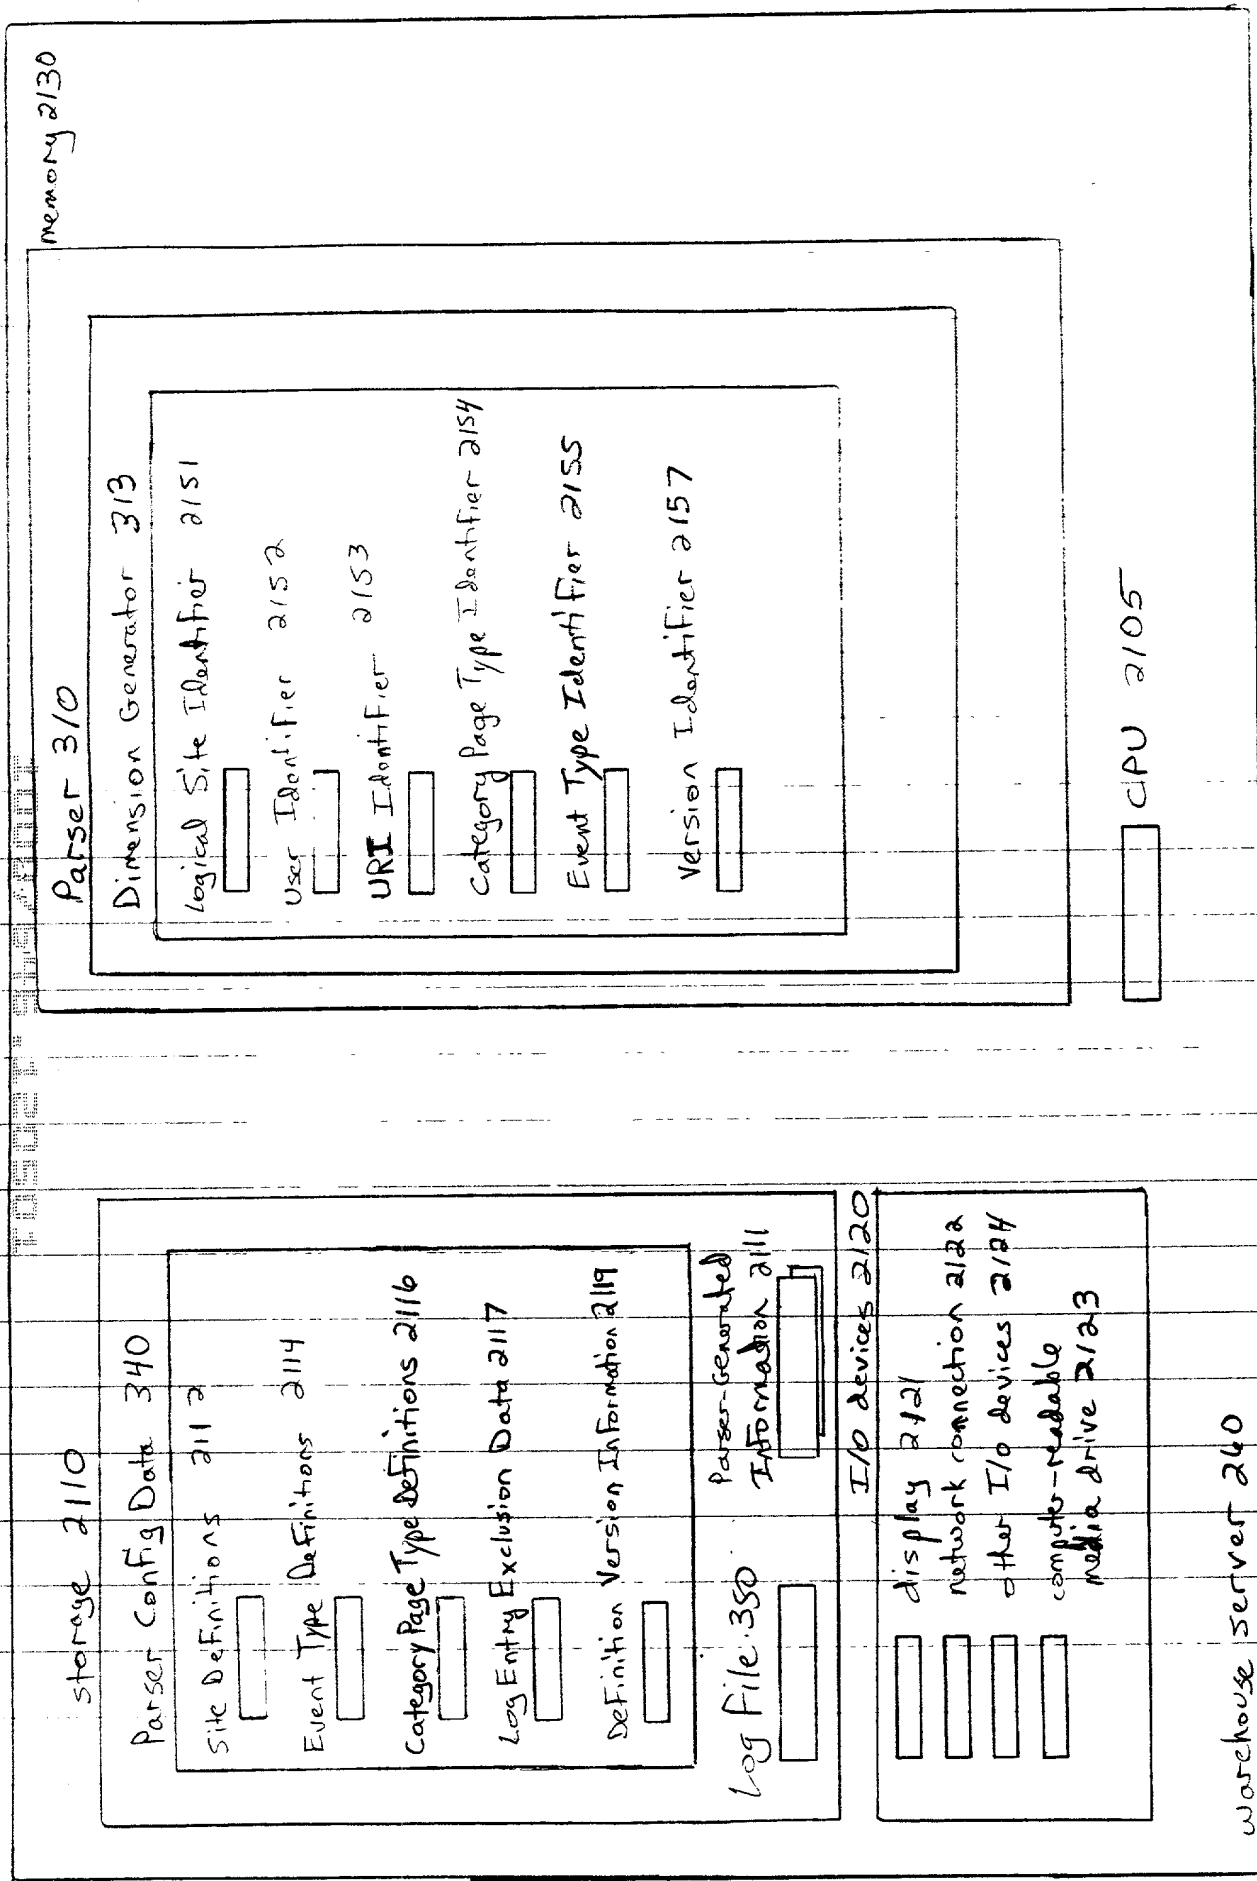 storage 2110
Parser Config Data 340
Site Definitions 2112
Event Type Definitions 2114
Category Page Type Definitions 2116
Log Entry Exclusion Data 2117
Definition Version Information 2119
Log File 350
Parser-Generated
Information 2111
I/O devices 2120
display 2121
network connection 2122
other I/O devices 2124
computer-readable
media drive 2123
warehouse server 260
memory 2130
Parser 310
Dimension Generator 313
Logical Site Identifier 2151
User Identifier 2152
URI Identifier 2153
Category Page Type Identifier 2154
Event Type Identifier 2155
Version Identifier 2157
CPU 2105